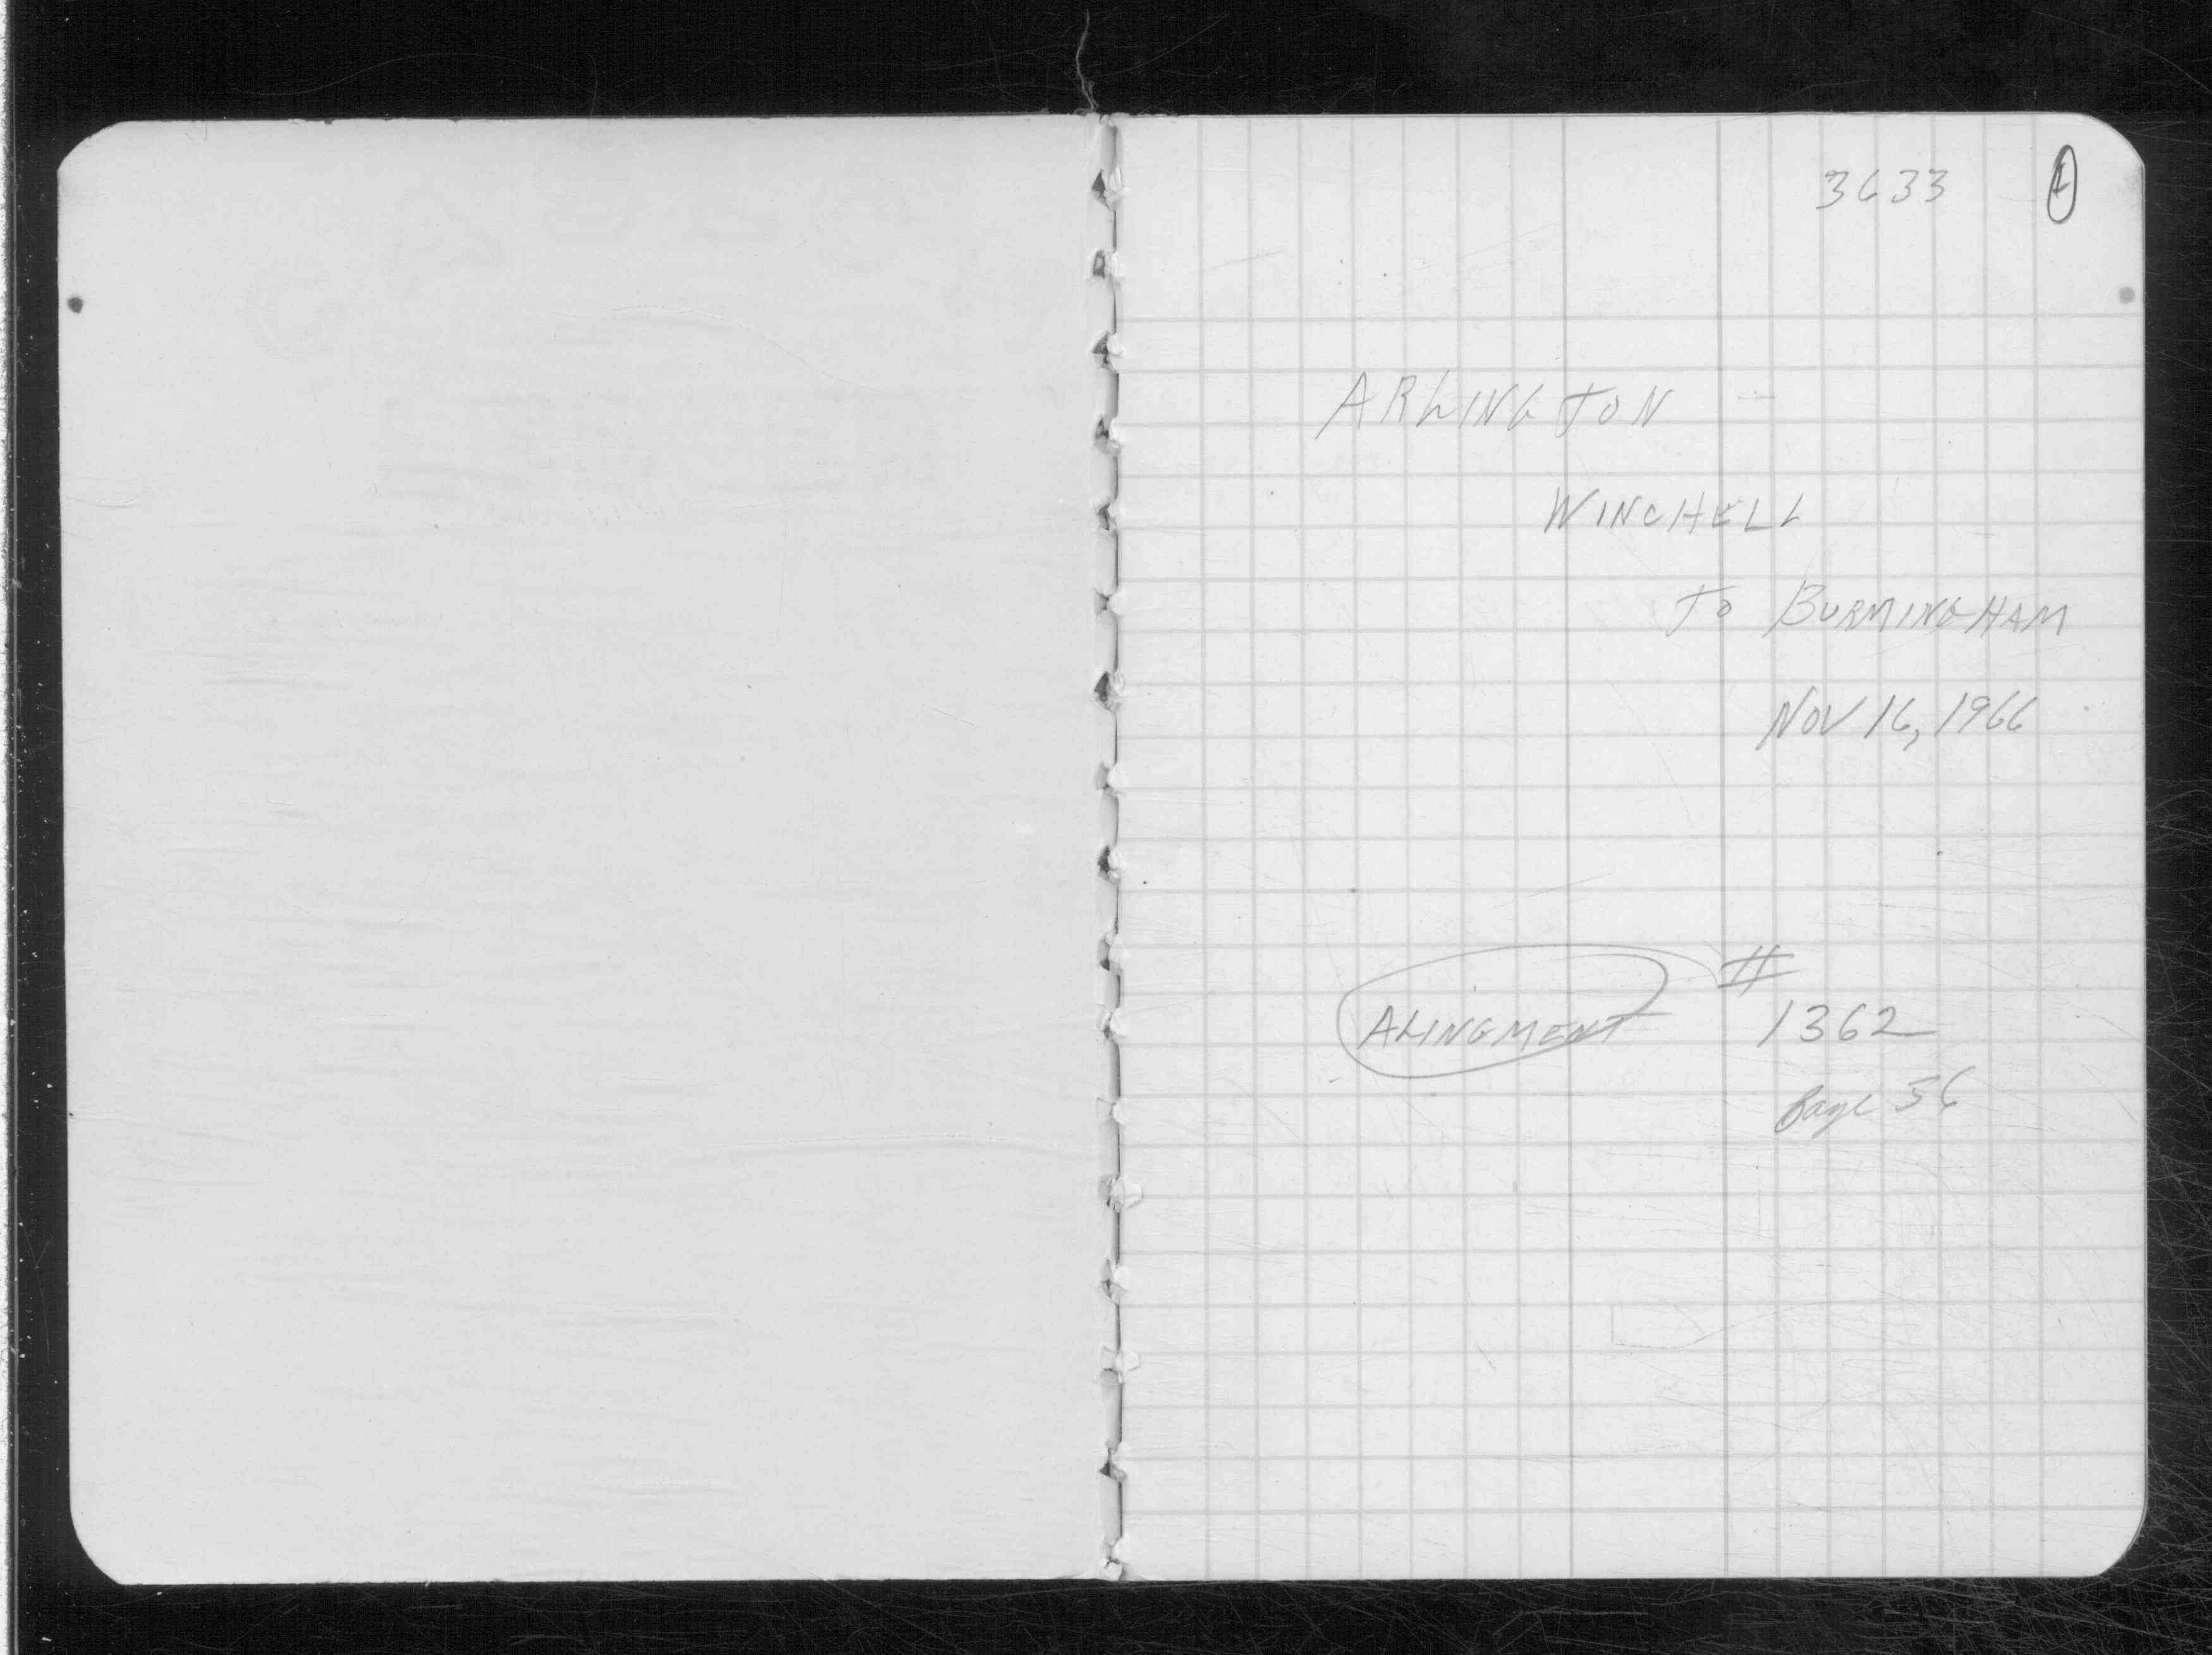 3633 1
ARLINGTON —
WINCHELL
TO BURMINGHAM
NOV 16, 1966
ALINGMENT #
1362
Page 56